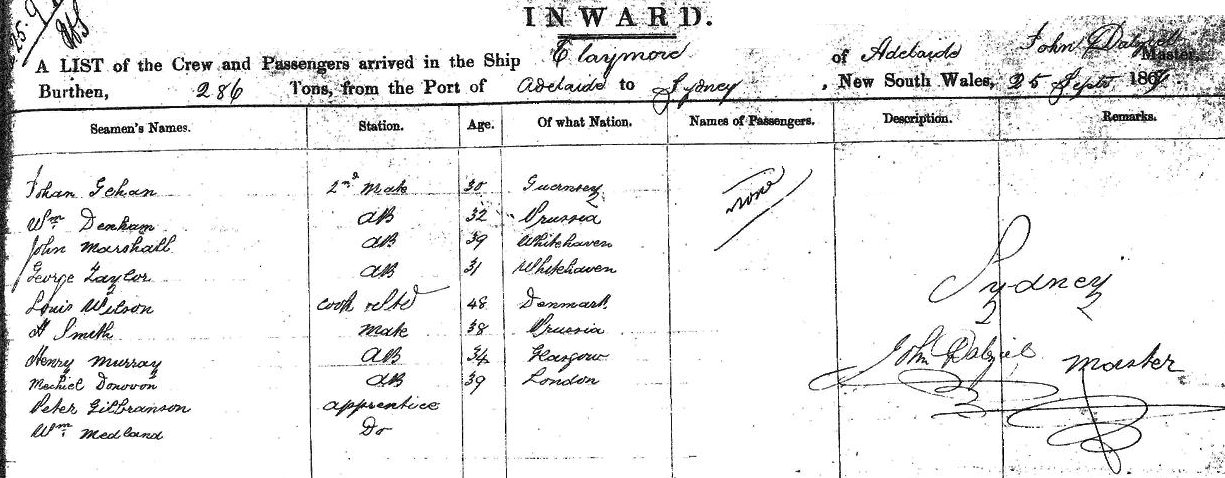 25.9
INWARD.
A LIST of the Crew and Passengers arrived in the Ship Claymore of Adelaide John Dalziel Master,
Burthen, 286 Tons, from the Port of Adelaide to Sydney, New South Wales, 25 Septr 186
Seamen's Names. Station. Age. Of what Nation. Names of Passengers. Description. Remarks.
Johan Gehan 2nd Mate 30 Guernsey none
Wm Denham AB 32 Prussia
John Marshall AB 39 Whitehaven
George Taylor AB 31 Whitehaven Sydney
Louis Wilson cook & Std 48 Denmark
H Smith Mate 38 Prussia
Henry Murray AB 34 Glasgow John Dalziel Master
Mechiel Donovon AB 39 London
Peter Gilbranson apprentice
Wm Medland Do